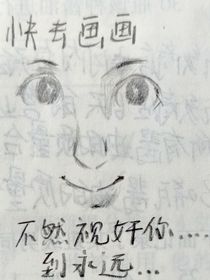 快去画画
不然视奸你....
到永远...